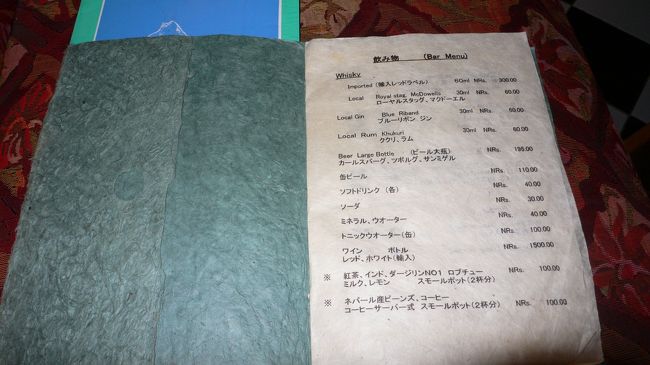 飲み物 (Bar Menu)
Whisky
Imported (輸入レッドラベル) 60ml NRs. 300.00
Local Royal stag, McDowells 30ml NRs. 60.00
ローヤルスタッグ、マクドーエル
Local Gin Blue Riband 30ml NRs. 60.00
ブルーリボン ジン
Local Rum Khukuri 30ml NRs. 60.00
ククリ、ラム
Beer Large Bottle (ビール大瓶) NRs. 195.00
カールスバーグ、ツボルグ、サンミゲル
缶ビール NRs. 110.00
ソフトドリンク (各) NRs. 40.00
ソーダ NRs. 30.00
ミネラル、ウオーター NRs. 40.00
トニックウオーター(缶) NRs. 100.00
ワイン ボトル NRs. 1500.00
レッド、ホワイト(輸入)
※ 紅茶、インド、ダージリンNO1 ロプチュー NRs. 100.00
ミルク、レモン スモールポット(2杯分)
※ ネパール産ビーンズ、コーヒー NRs. 100.00
コーヒーサーバー式 スモールポット(2杯分)